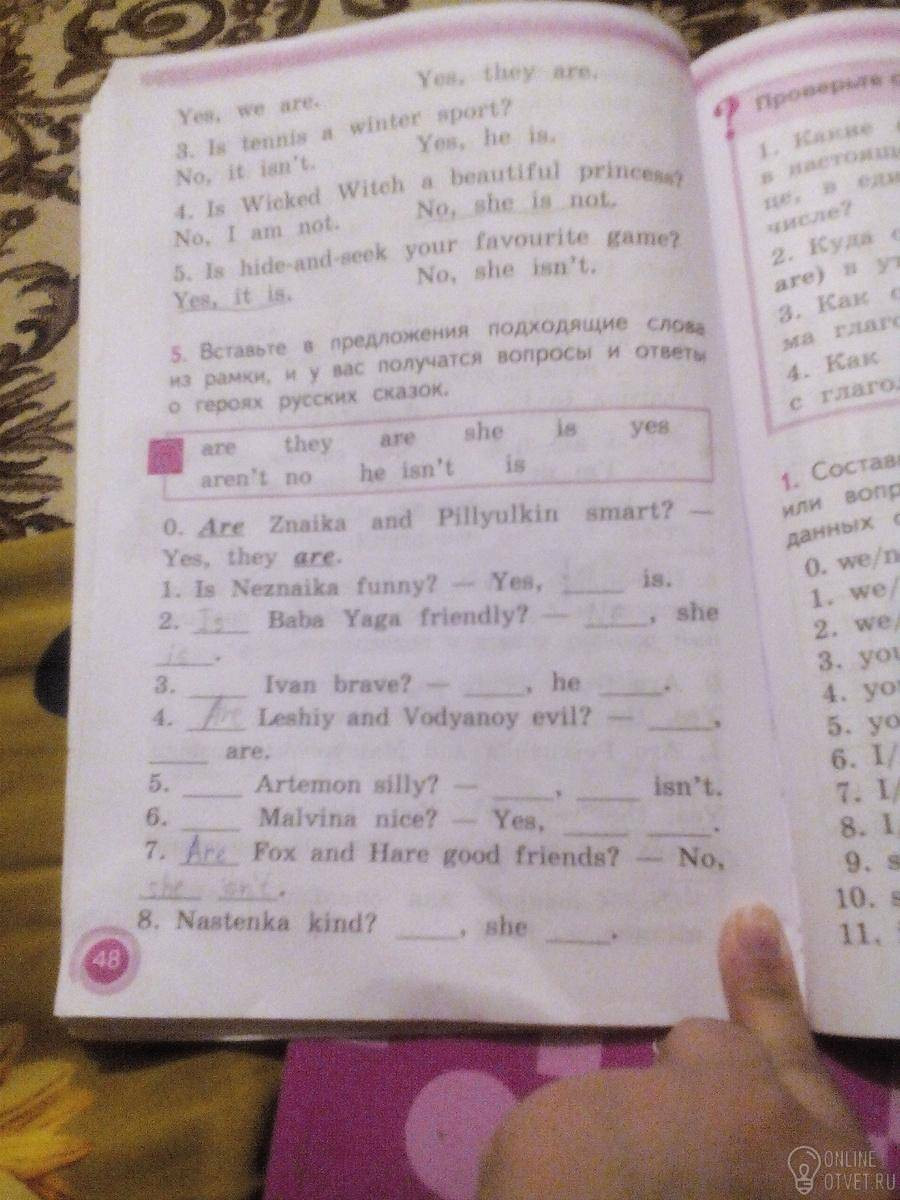 Yes, we are. Yes, they are.
3. Is tennis a winter sport?
No, it isn't. Yes, he is.
4. Is Wicked Witch a beautiful princess?
No, I am not. No, she is not.
5. Is hide-and-seek your favourite game?
Yes, it is. No, she isn't.
5. Вставьте в предложения подходящие слова
из рамки, и у вас получатся вопросы и ответы
о героях русских сказок.
are they are she is yes
aren't no he isn't is
0. Are Znaika and Pillyulkin smart? —
Yes, they are.
1. Is Neznaika funny? — Yes, ____ is.
2. Is Baba Yaga friendly? — No, she
is.
3. ____ Ivan brave? — ____, he ____.
4. Are Leshiy and Vodyanoy evil? — ____,
____ are.
5. ____ Artemon silly? — ____, ____ isn't.
6. ____ Malvina nice? — Yes, ____ ____.
7. Are Fox and Hare good friends? — No,
she isn't.
8. Nastenka kind? ____, she ____.
48
? Проверьте
1. Какие
в настоящ
це, в еди
числе?
2. Куда
are) в ут
3. Как
ма глаго
4. Как
с глагол
1. Состав
или вопр
данных
0. we/n
1. we/
2. we/
3. you
4. you
5. yo
6. I/
7. I/
8. I
9. s
10. s
11.
ONLINE
OTVET.RU